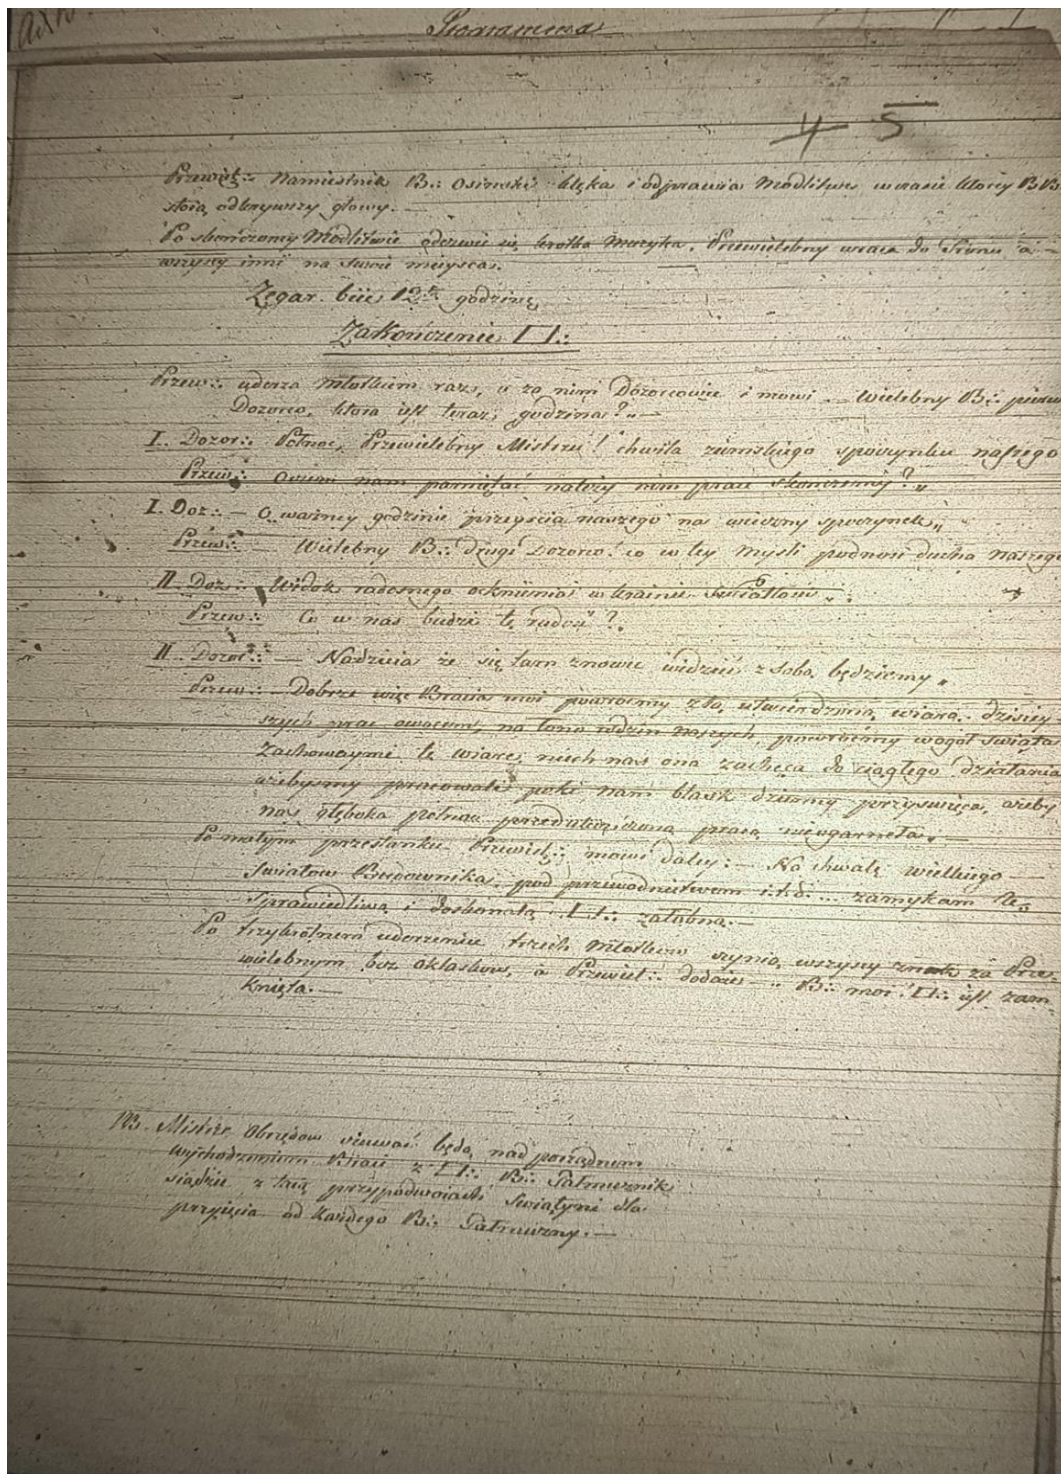 4 5
Przewiel∴ Namiestnik B∴ Osinski klęka i odprawia Modlitwę w czasie ktorey BB
stoią odkrywszy głowy. —
Po skończoney Modlitwie odezwie się krotka Muzyka. Przewielebny wraca do Tronu a —
wszyscy inni na swoie mieysca.
Zegar biie 12tą godzinę
Zakończenie □∴
Przew∴ uderza młotkiem raz, a za nim Dozorcowie i mowi — Wielebny B∴ pierw
Dozorco, ktora iest teraz godzina? „ —
I. Dozor∴ Połnoc, Przewielebny Mistrzu! chwila ziemskiego spoczynku naszego
Przew∴ O czem nam pamiętać należy nim prace skonczemy? „
I. Doz∴ — O ważney godzinie przeyscia naszego na wieczny spoczynek „
Przew∴ — Wielebny B∴ drugi Dozorco! co w tey mysli podnosi ducha naszego
II. Doz∴ Widok radosnego ocknienia w krainie Swiatłosci „
Przew∴ Co w nas budzi tę radość? „
II. Dozor∴ — Nadzieia że się tam znowu widzieć z sobą będziemy „
Przew∴ — Dobrze więc Bracia moi powrocmy z tą utwierdzoną wiarą dzisiey
szych prac owocem, na łono rodzin naszych, powrocmy wogoł swiata
Zachowaymi tę wiarę, niech nas ona zachęca do ciągłego działania
ażebysmy pracowali poki nam blask dzienny przyswieca, ażeby
nas głęboka połnoc przed ukonczoną pracą nieogarneła „
Po małym przestanku Przewiel∴ mowi daley: — Na chwałę wielkiego —
Swiatow Budownika, pod przewodnictwem i.t.d. ... zamykam tę
Sprawiedliwą i doskonałą □∴ załobną. —
Po trzykrotnem uderzeniu trzech Młotkow czynią wszyscy znak za Prze-
wielebnym bez oklaskow, a Przewiel∴ dodaie — „ B∴ moi! □∴ iest zam
knięta. —
NB. Mistrz Obrzędow czuwać będą nad porządnem
wychodzeniem Braci z □∴ B∴ Jałmużnik
siądzie z tacą przy podwoiach Swiątyni dla
przyięcia od każdego B∴ Jałmużny. —